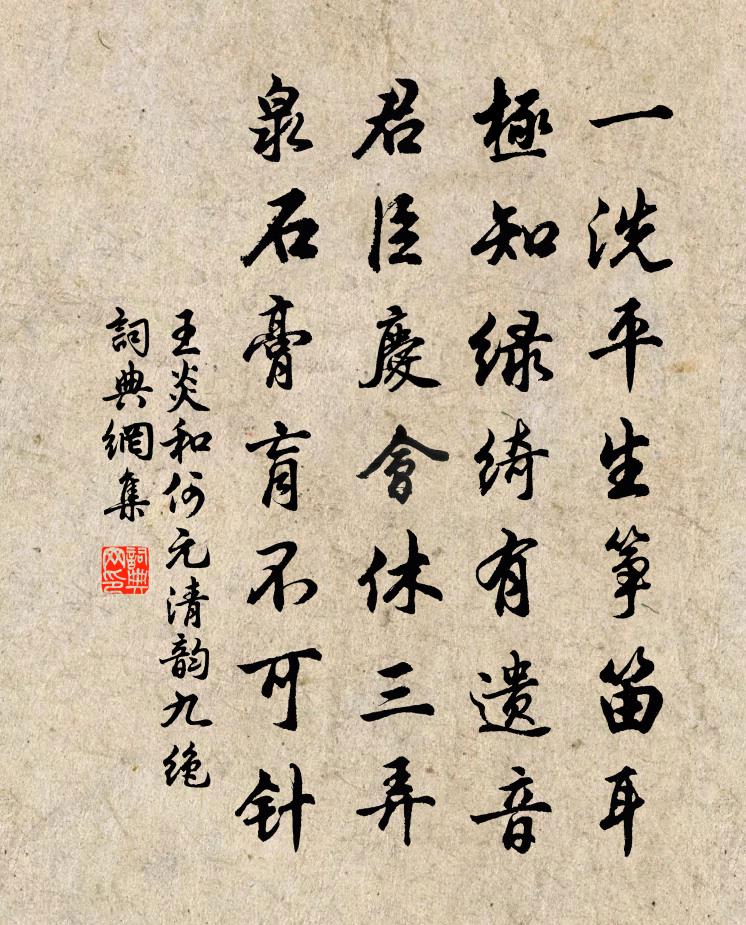 一洗平生筝笛耳
極知緑綺有遺音
君臣慶會休三弄
泉石膏肓不可针
王炎和何元清韵九绝
詞典網集
詞典網印